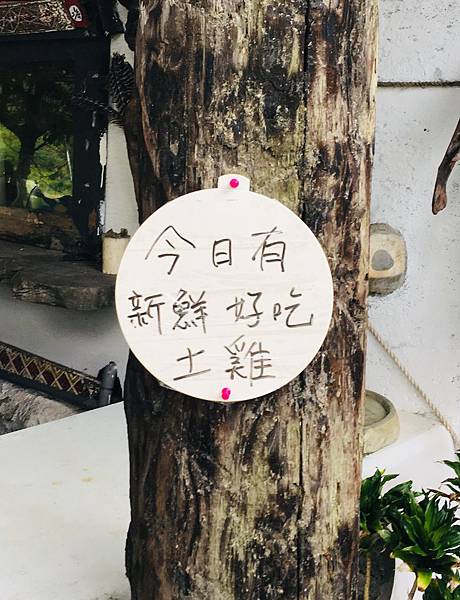 今日有
新鮮好吃
土雞